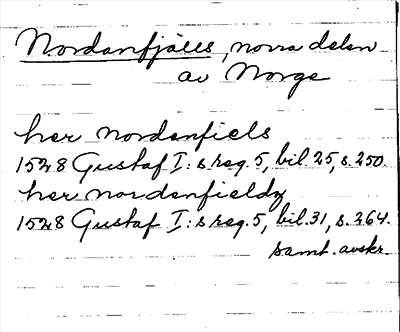 Nordanfjälls, norra delen
av Norge
her nordenfiels
1528 Gustaf I:s reg. 5, bil. 25, s. 250.
her nordenfieldz
1528 Gustaf I:s reg. 5, bil. 31, s. 264.
samt. avskr.